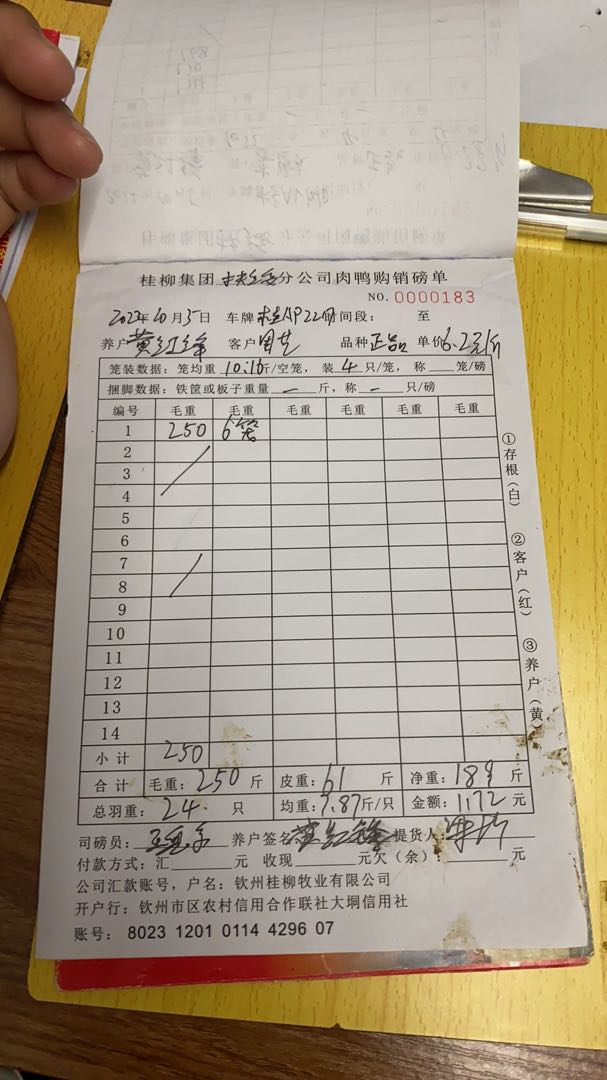 桂柳集团 分公司肉鸭购销磅单
NO. 0000183
2022年10月5日 车牌 AP22 时间段： 至
养户 黄红锋 客户 品种 正品 单价 6.2元/斤
笼装数据：笼均重 10.16 斤/空笼，装 4 只/笼，称 笼/磅
捆脚数据：铁筐或板子重量 — 斤，称 — 只/磅
编号 毛重 毛重 毛重 毛重 毛重 毛重
1 250 6笼
2
3
4
5
6
7
8
9
10
11
12
13
14
小计 250
合计 毛重：250 斤 皮重：61 斤 净重：189 斤
总羽重：24 只 均重：7.87斤/只 金额：1172 元
司磅员： 养户签名 黄红锋 提货人：
付款方式：汇 元 收现 元欠（余）： 元
公司汇款账号，户名：钦州桂柳牧业有限公司
开户行：钦州市区农村信用合作联社大垌信用社
账号：8023 1201 0114 4296 07
①存根（白）
②客户（红）
③养户（黄）